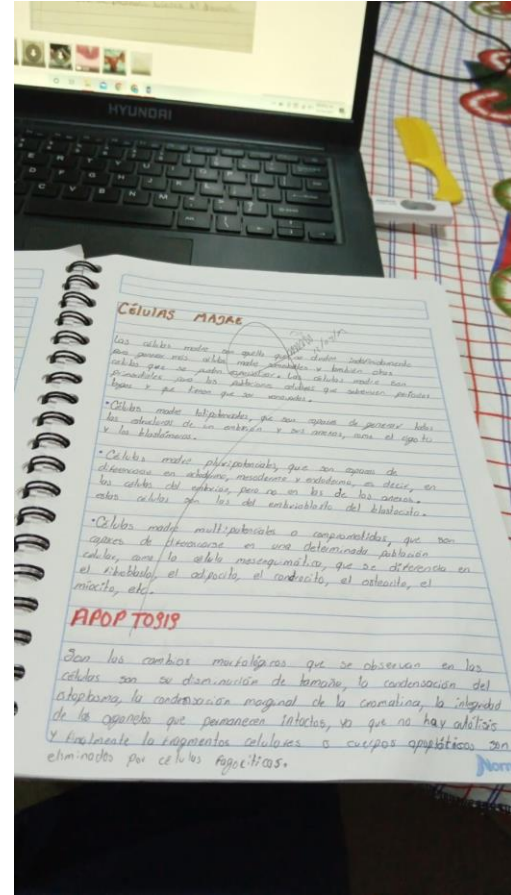 HYUNDAI
Células MADRE
Las células madre son aquella que se dividen
para generar más células madre y también otras
células que se puedan especializar. Las células madre son
para las poblaciones celulares que
y que tienen que ser renovadas.
•Células madre totipotenciales, que son capaces de generar todas
las estructuras de un embrión y sus anexos, como el cigoto
y los blastómeros.
•Células madre pluripotenciales, que son capaces de
diferenciarse en ectodermo, mesodermo y endodermo, es decir, en
las células del embrión, pero no en las de los anexos.
estas células son las del embrioblasto del blastocisto.
•Células madre multipotenciales o comprometidas, que son
capaces de diferenciarse en una determinada población
celular, como la célula mesenquimática, que se diferencia en
el fibroblasto, el adipocito, el condrocito, el osteocito, el
miocito, etc.
APOPTOSIS
Son los cambios morfológicos que se observan en las
células son su disminución de tamaño, la condensación del
citoplasma, la condensación marginal de la cromatina, la integridad
de los organelos que permanecen intactos, ya que no hay autólisis
y finalmente la fragmentos celulares o cuerpos apoptóticos son
eliminados por células fagocíticas.
Norm